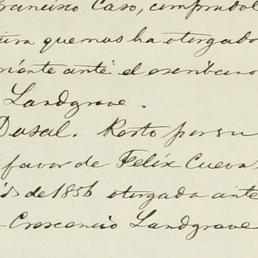 Francisco Caso, comprado
que nos ha otorgado
ante el escribano
Landgrave.
Dosal. Resto por su
favor de Felix Cueva
de 1856 otorgada ante
Crescencio Landgrave